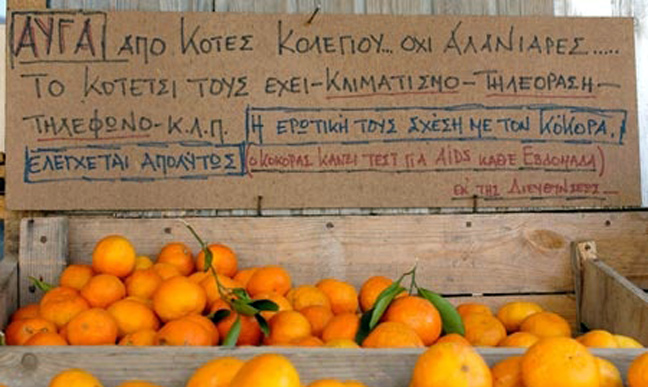 ΑΥΓΑ ΑΠΟ ΚΟΤΕΣ ΚΟΛΕΓΙΟΥ... ΟΧΙ ΑΛΑΝΙΑΡΕΣ.....
ΤΟ ΚΟΤΕΤΣΙ ΤΟΥΣ ΕΧΕΙ-ΚΛΙΜΑΤΙΣΜΟ-ΤΗΛΕΟΡΑΣΗ-
ΤΗΛΕΦΩΝΟ-Κ.Λ.Π. Η ΕΡΩΤΙΚΗ ΤΟΥΣ ΣΧΕΣΗ ΜΕ ΤΟΝ ΚΟΚΟΡΑ,
ΕΛΕΓΧΕΤΑΙ ΑΠΟΛΥΤΩΣ (Ο ΚΟΚΟΡΑΣ ΚΑΝΕΙ ΤΕΣΤ ΓΙΑ AIDS ΚΑΘΕ ΕΒΔΟΜΑΔΑ)
ΕΚ ΤΗΣ ΔΙΕΥΘΥΝΣΕΩΣ...